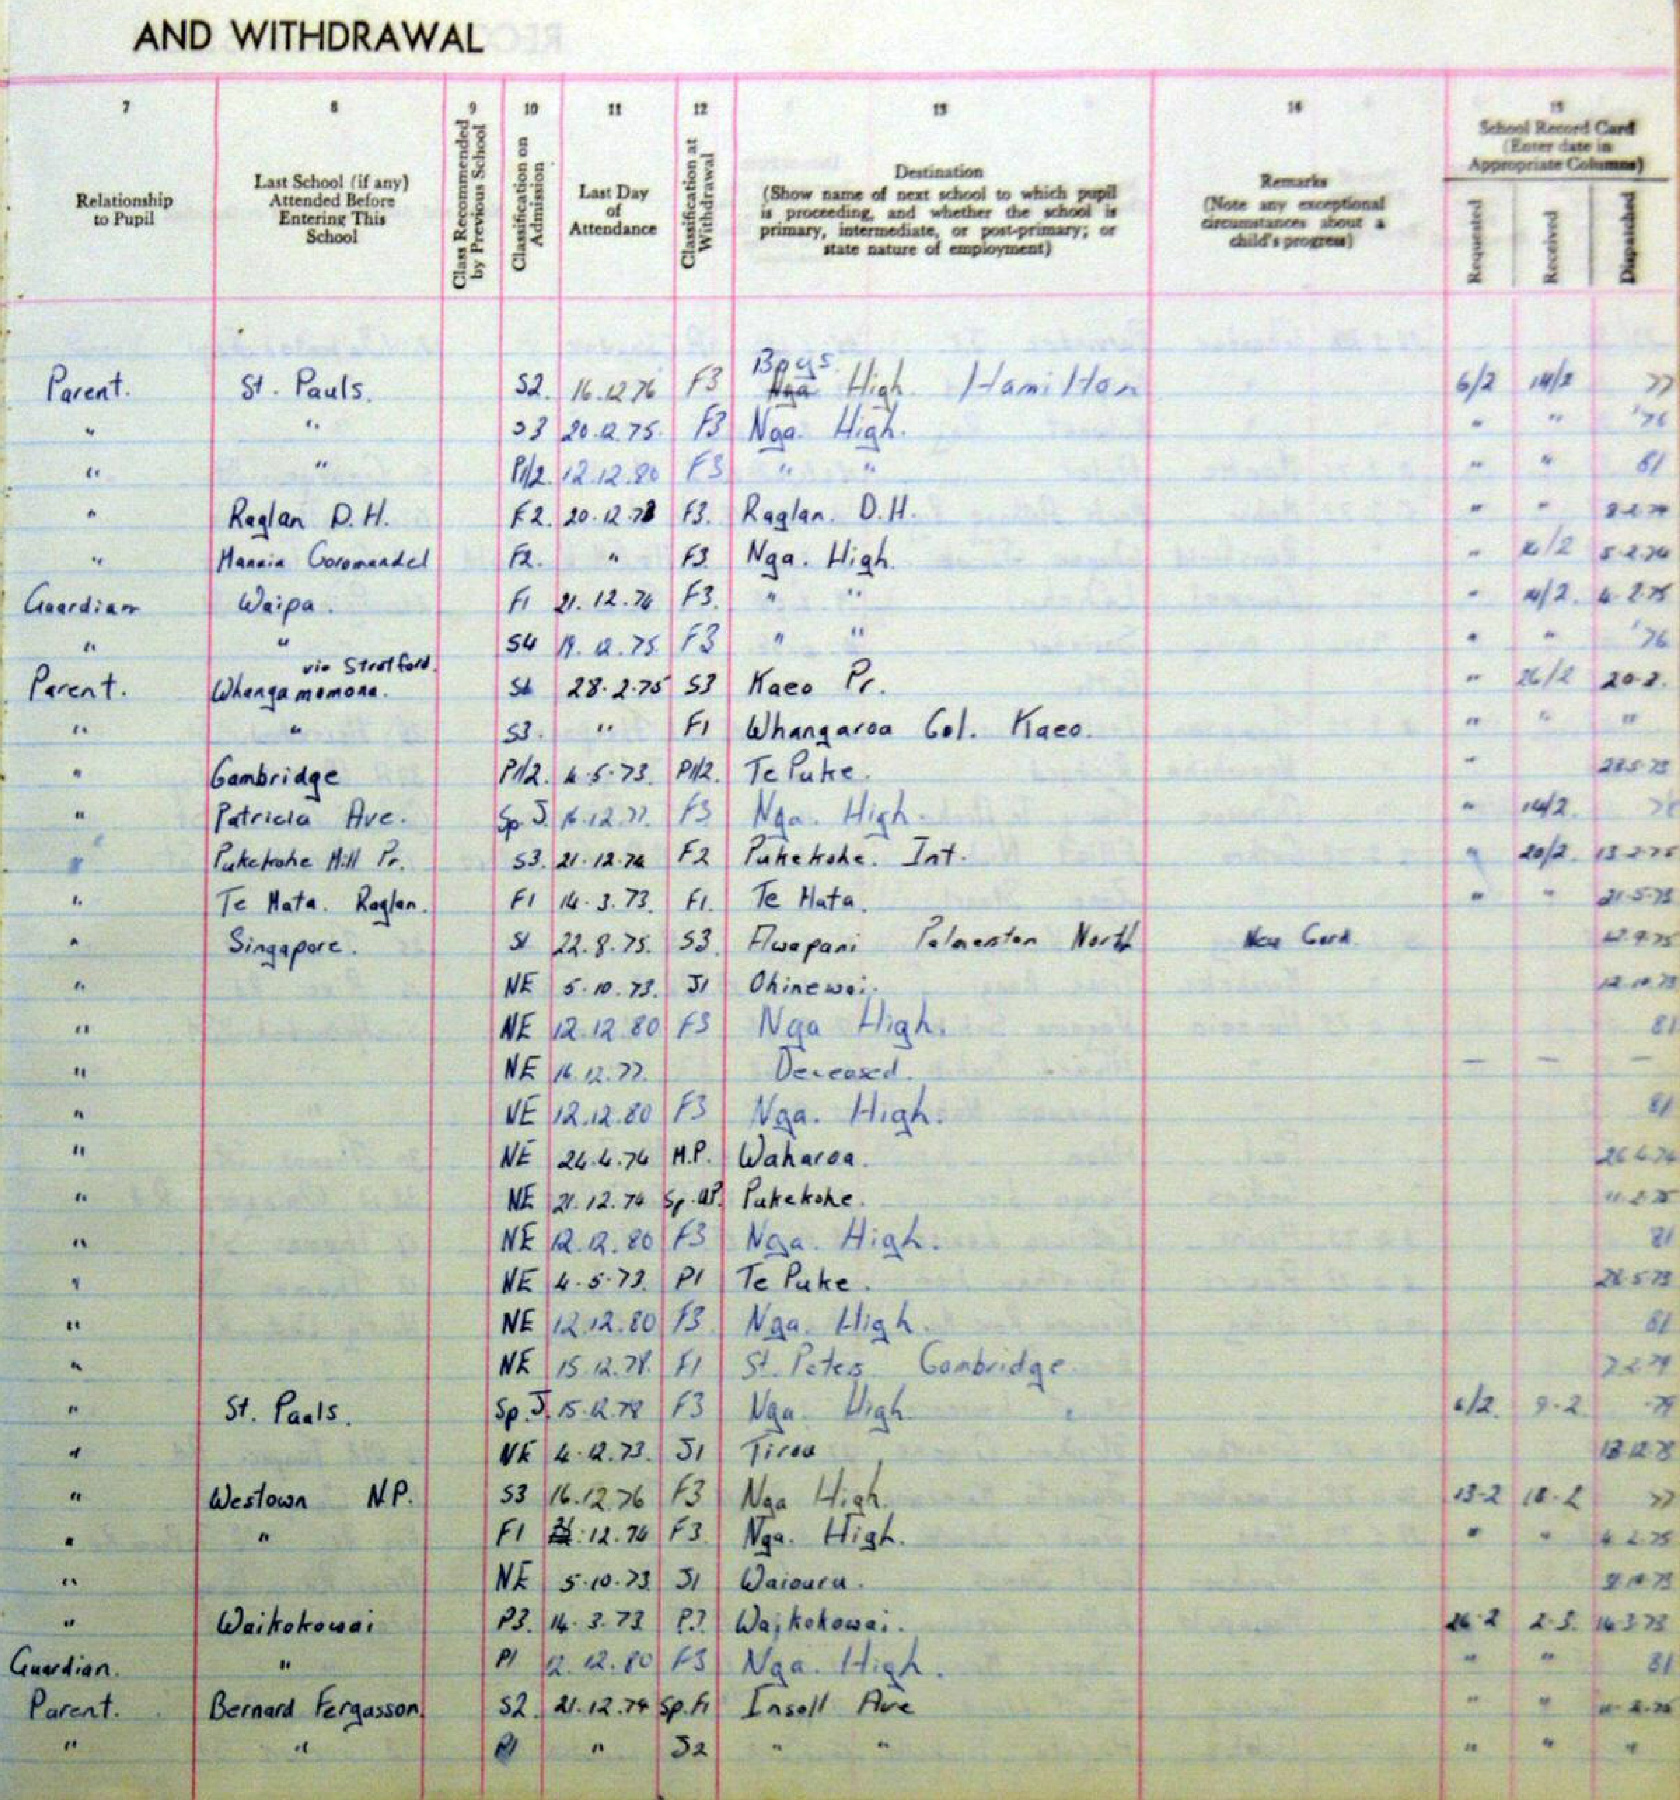 AND WITHDRAWAL
7 8 9 10 11 12 13 14 15
Relationship to Pupil
Last School (if any) Attended Before Entering This School
Class Recommended by Previous School
Classification on Admission
Last Day of Attendance
Classification at Withdrawal
Destination (Show name of next school to which pupil is proceeding, and whether the school is primary, intermediate, or post-primary; or state nature of employment)
Remarks (Note any exceptional circumstances about a child's progress)
School Record Card (Enter date in Appropriate Columns)
Requested Received Dispatched
Boys
Parent. St. Pauls. S2. 16.12.76 F3 Nga High. Hamilton 6/2 14/2 77
" " S3 20.12.75. F3 Nga. High. " " '76
" " P1/2. 12.12.80 F3 " " " " 81
" Raglan D.H. F2. 20.12.73 F3. Raglan. D.H. " "
" Mannia Coromandel F2. " F3 Nga. High. "
Guardian Waipa. F1 21.12.74 F3. " " " 14/2. 4.2.75
" " S4 19.12.75 F3 " " " " '76
via Stratford.
Parent. Whangamomona. 28.2.75 S3 Kaeo Pr. " 26/2 20.3.
" " S3. " F1 Whangaroa Col. Kaeo. " " "
" Cambridge P1/2. 4.5.73. P1/2. Te Puke. " 28.5.73
" Patricia Ave. Sp J. 16.12.77. F3 Nga. High. " 14/2. 78
Pukekohe Hill Pr. S3. 21.12.74 F2 Pukekohe. Int. " 20/2. 13.2.75
" Te Mata. Raglan. F1 14.3.73. F1. Te Mata. " " 21.5.73
" Singapore. S1 22.8.75. S3. Awapani Palmerston North New Card
" NE 5.10.73. J1 Ohinewai. 12.10.73
" NE 12.12.80 F3 Nga High. 81
" NE 16.12.77. Deceased. — — —
" NE 12.12.80 F3 Nga. High. 81
" NE 24.4.74 M.P. Waharoa. 26.4.74
" NE 21.12.74 Sp. Pukekohe. 11.2.75
" NE 12.12.80 F3 Nga. High. 81
" NE 4.5.73. P1 Te Puke. 28.5.73
" NE 12.12.80 F3. Nga. High. 81
" NE 15.12.78. F1 St. Peters Cambridge. 7.2.79
" St. Pauls. Sp. J. 15.12.78 F3 Nga. High 6/2. 9.2 79
" NE 4.12.73. J1 Tirau
" Westown N.P. S3 16.12.76 F3 Nga High. 13.2 18.2 77
" " F1 12.74 F3. Nga. High. " " 4.2.75
" NE 5.10.73 J1 Waiouru.
" Waikokowai P3. 14.3.73 P3. Waikokowai. 26.2 2.3. 14.3.73
Guardian. " P1 12.12.80 F3 Nga. High. " " 81
Parent. Bernard Fergasson S2. 21.12.74 Sp.F1 Insoll Ave " "
" " P1 " J2 " " " " "